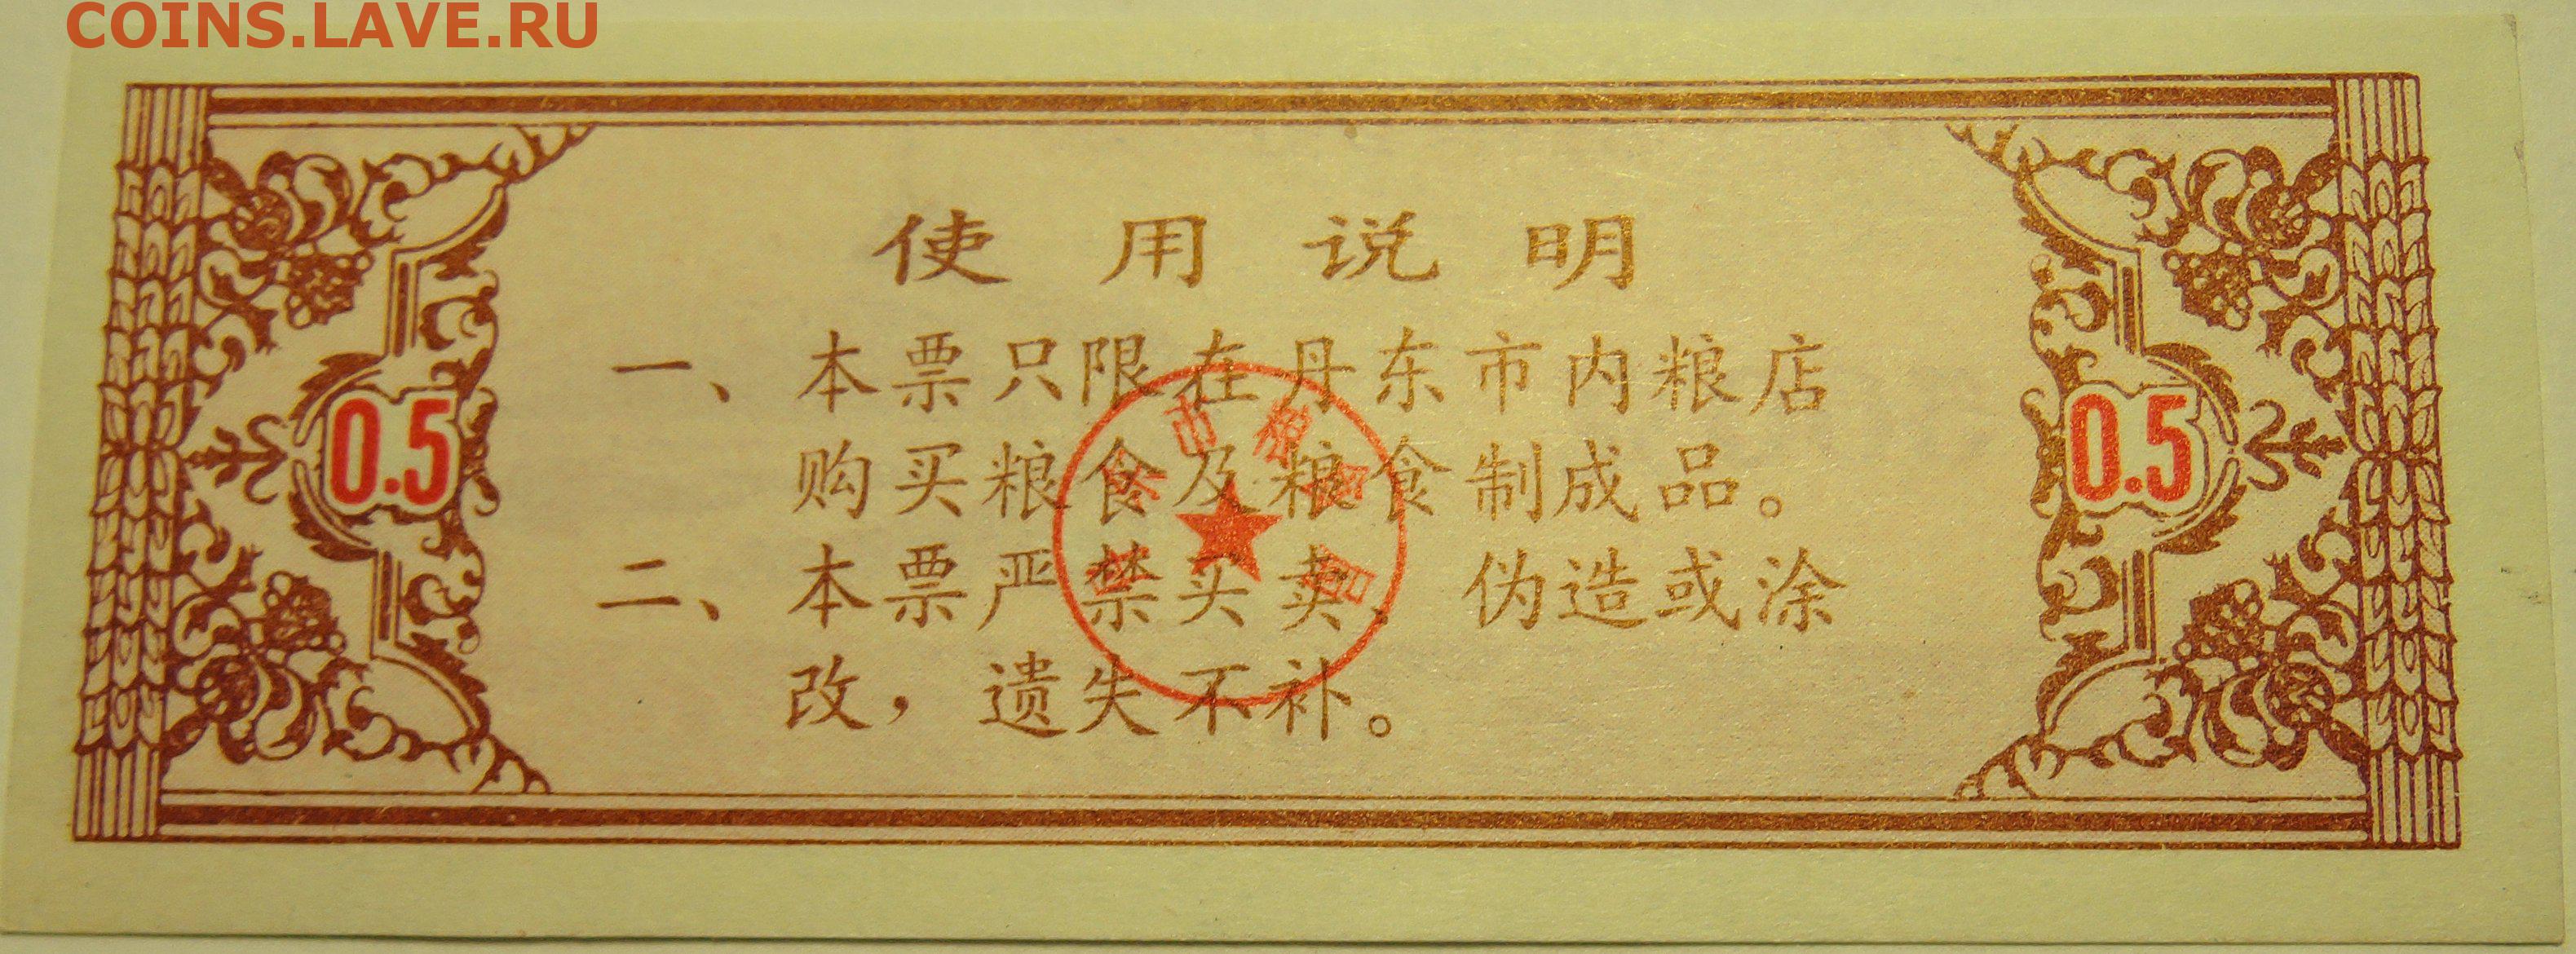 COINS.LAVE.RU
使用说明
一、本票只限在丹东市内粮店
0.5
0.5
购买粮食及粮食制成品。
二、本票严禁买卖，伪造或涂
改，遗失不补。
市粮